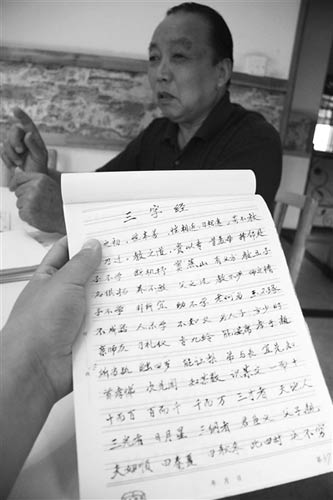 三字经
之初，性本善，性相近，习相远，苟不教
乃迁，教之道，贵以专，昔孟母，择邻处
子不学，断机杼，窦燕山，有义方，教五子
名俱扬，养不教，父之过，教不严，师之惰
子不学，非所宜，幼不学，老何为，玉不琢
不成器，人不学，不知义，为人子，方少时
亲师友，习礼仪，香九龄，能温席，孝于亲
所当执，融四岁，能让梨，弟于长，宜先知
首孝悌，次见闻，知某数，识某文，一而十
十而百，百而千，千而万，三才者，天地人
三光者，日月星，三纲者，君臣义，父子亲
夫妇顺，曰春夏，曰秋冬，此四时，运不穷
年 月 日